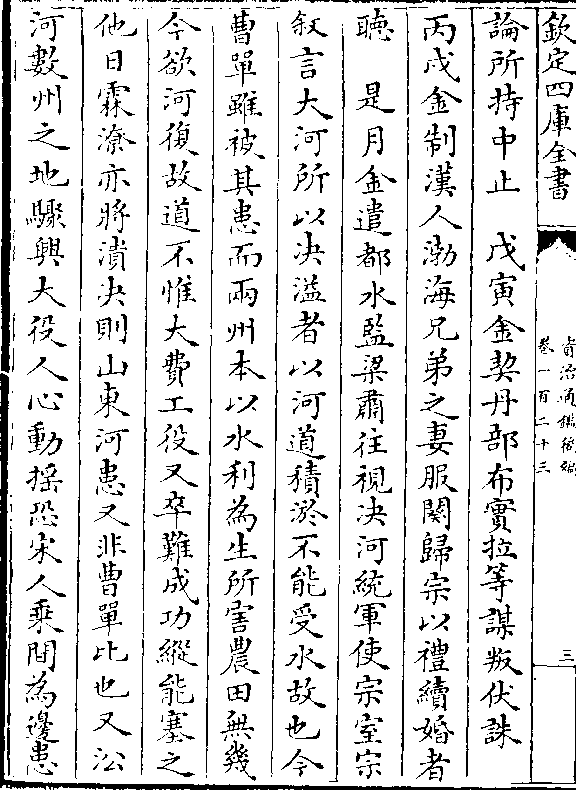 欽定四庫全書
資治通鑑後編
卷一百二十三
三
論所持中止　戊寅金契丹部布實拉等謀叛伏誅
丙戌金制漢人渤海兄弟之妻服闋歸宗以禮續婚者
聽　是月金遣都水監梁肅往視決河統軍使宗室宗
叙言大河所以決溢者以河道積淤不能受水故也今
曹單雖被其患而兩州本以水利為生所害農田無幾
今欲河復故道不惟大費工役又卒難成功縱能塞之
他日霖潦亦將潰決則山東河患又非曹單比也又沿
河數州之地驟興大役人心動揺恐宋人乘間為邊患